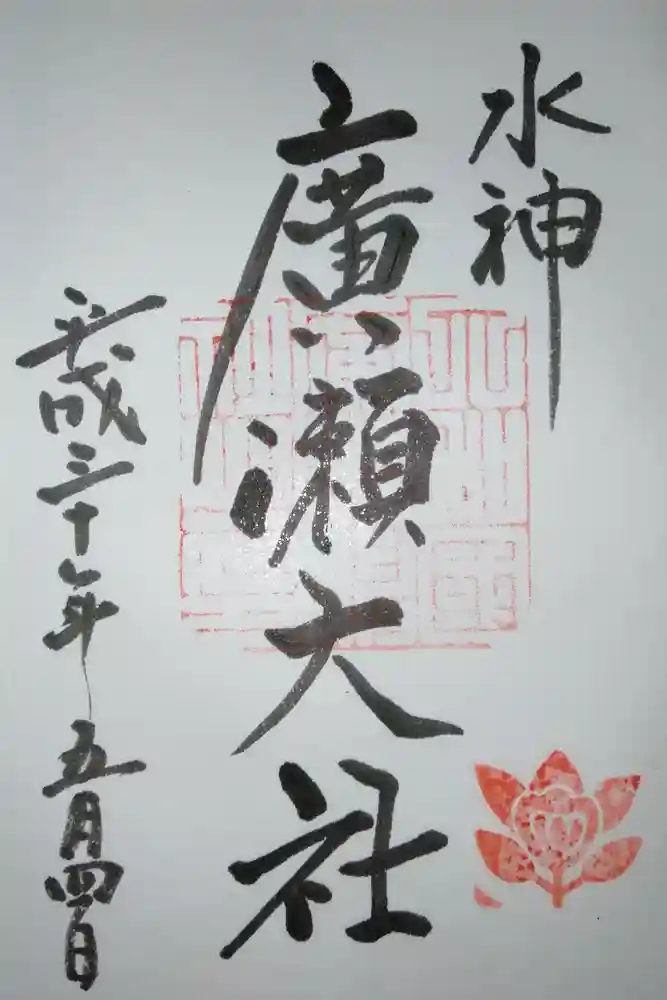 水神
廣瀬大社
平成三十年五月四日